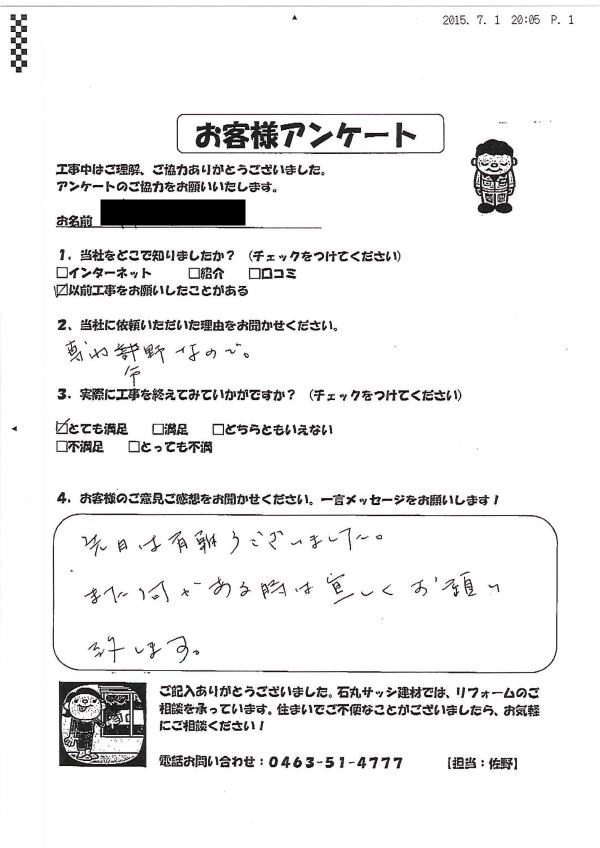 2015. 7. 1 20:05 P. 1
お客様アンケート
工事中はご理解、ご協力ありがとうございました。
アンケートのご協力をお願いいたします。
お名前
1．当社をどこで知りましたか？（チェックをつけてください）
□インターネット □紹介 □口コミ
☑以前工事をお願いしたことがある
2、当社に依頼いただいた理由をお聞かせください。
野なので。
3．実際に工事を終えてみていかがですか？（チェックをつけてください）
☑とても満足 □満足 □どちらともいえない
□不満足 □とっても不満
4．お客様のご意見ご感想をお聞かせください。一言メッセージをお願いします！
先日は有難うございました。
また何かある時は宜しくお願い
致します。
ご記入ありがとうございました。石丸サッシ建材では、リフォームのご
相談を承っています。住まいでご不便なことがございましたら、お気軽
にご相談ください！
電話お問い合わせ：0463-51-4777 【担当：佐野】